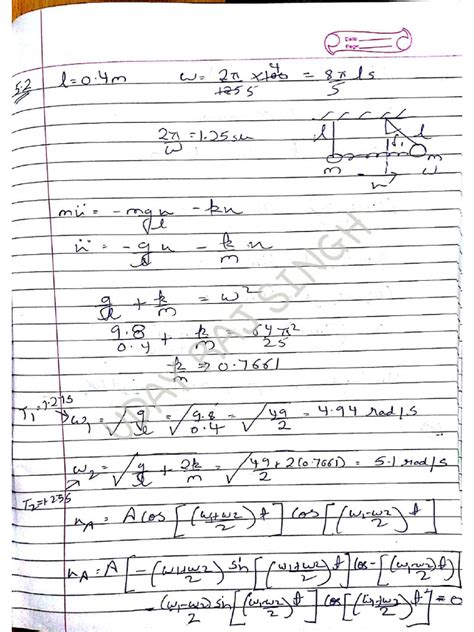 Date
Page
5.2 l = 0.4m ω = 2π/1.25 × 100 4/5 = 8π/5 /s
2π/ω = 1.25 sec
l l
m m
x
mẍ = -mgx/l - kx
ẍ = -g/l x - k/m x
g/l + k/m = ω²
9.8/0.4 + k/m = 64π²/25
k/m ⇒ 0.7661
T₁=1.27s → ω₁ = √(g/l) = √(9.8/0.4) = √(49/2) = 4.94 rad/s
T₂=1.23s → ω₂ = √(g/l + 2k/m) = √(49/2 + 2(0.7661)) = 5.1 rad/s
x_A = A cos [(ω₁+ω₂/2) t] cos [(ω₁-ω₂/2) t]
x_A = A [-(ω₁+ω₂/2) sin [(ω₁+ω₂/2) t] cos [(ω₁-ω₂/2) t]
-(ω₁-ω₂/2) sin [(ω₁-ω₂/2) t] cos [(ω₁+ω₂/2) t] = 0
UDAY RAJ SINGH